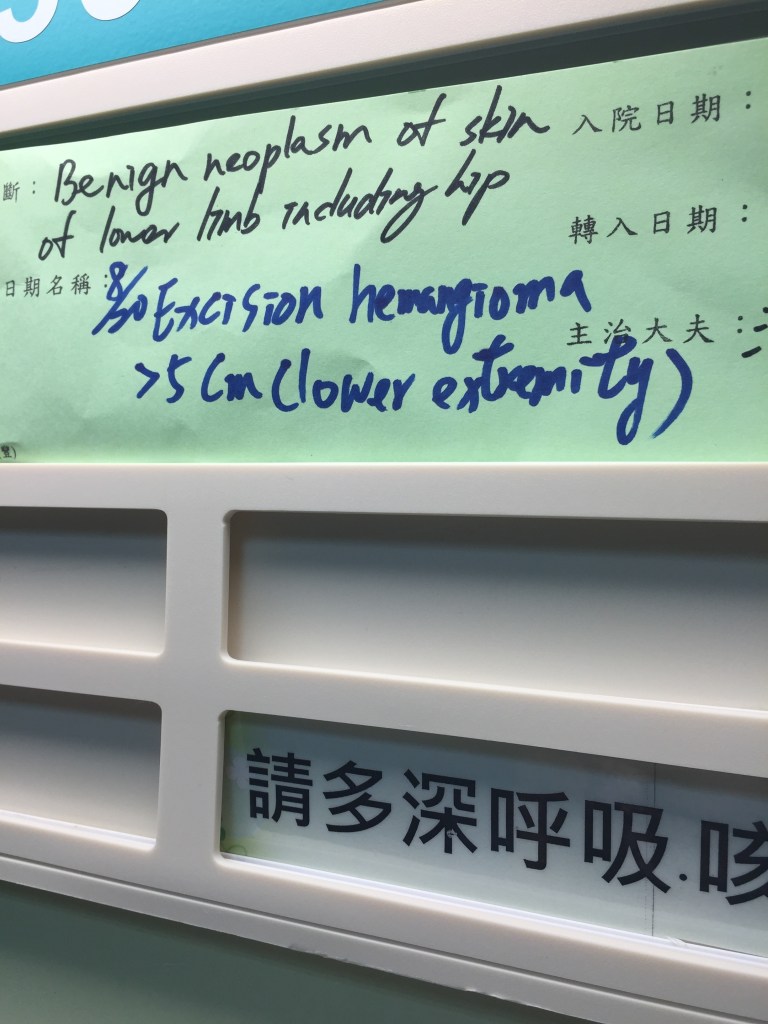 斷：Benign neoplasm of skin
of lower limb including hip
入院日期：
轉入日期：
日期名稱：8/30 Excision hemangioma
>5 cm (lower extremity)
主治大夫：
請多深呼吸.咳